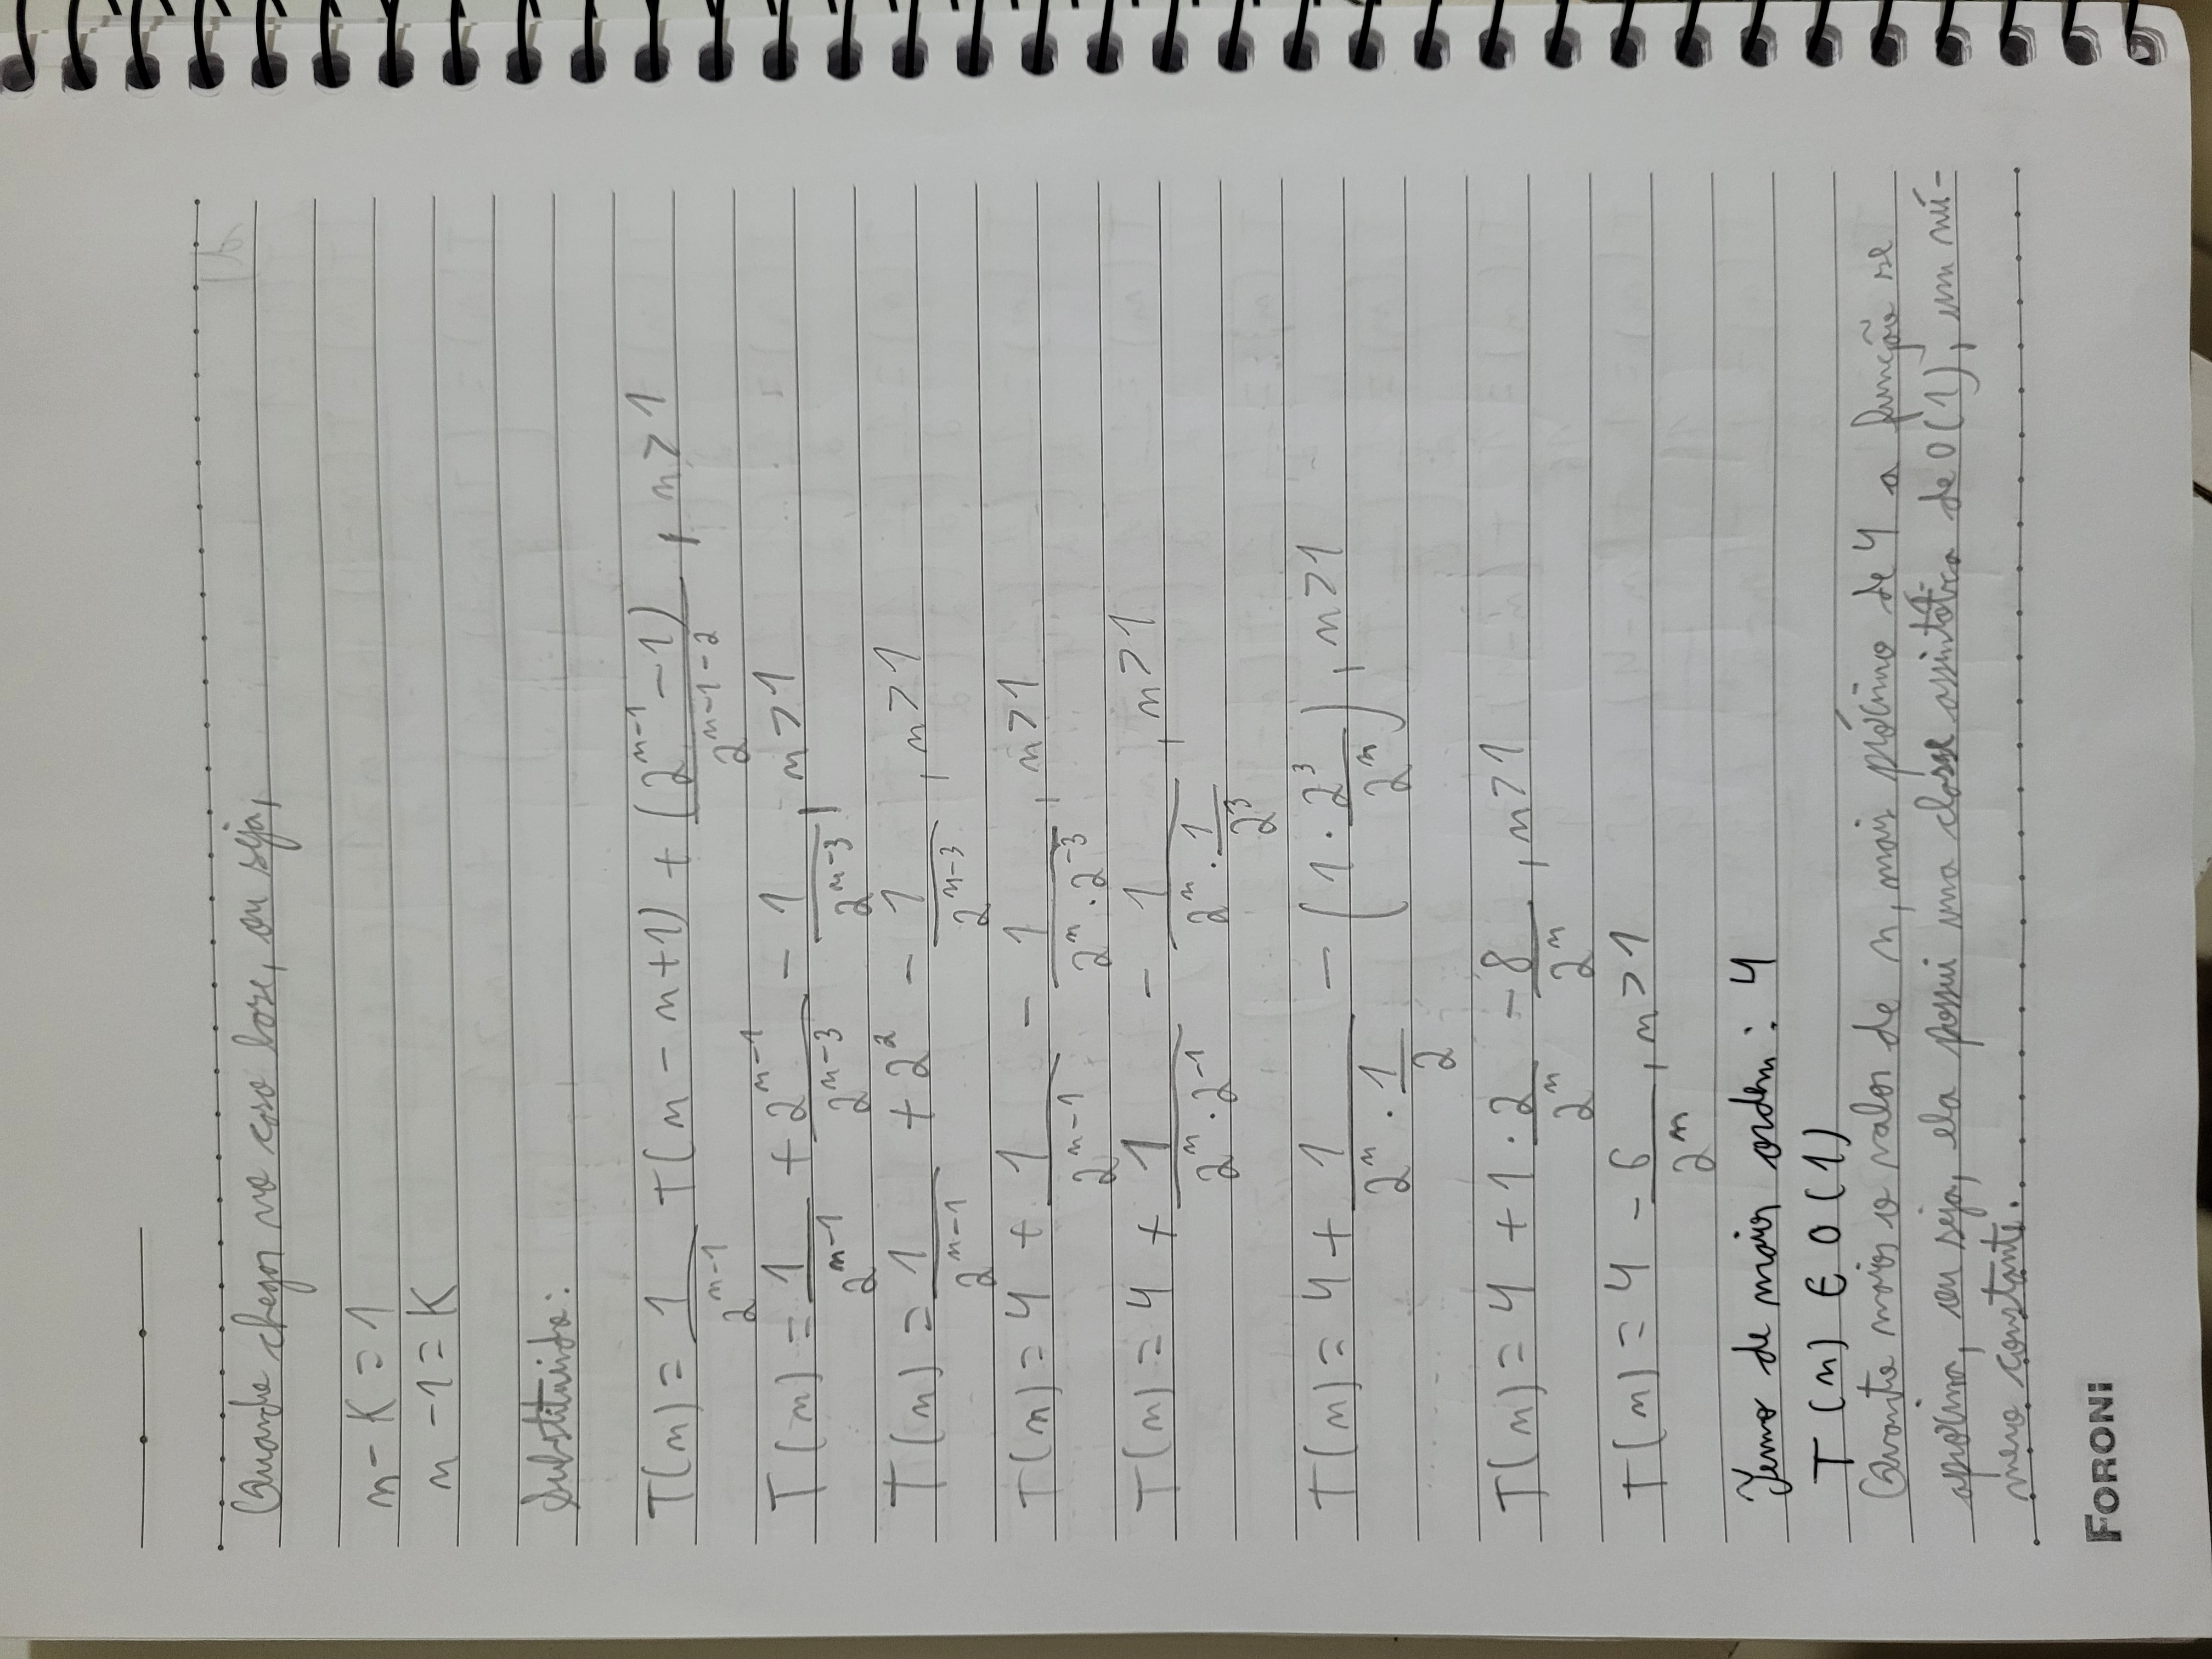 Quando chegar no caso base, ou seja,
n - K = 1
n - 1 = K
Substituindo:
T(n) = 1/2^(n-1) T(n - n + 1) + (2^(n-1) - 1)/2^(n-1-2) , n > 1
T(n) = 1/2^(n-1) + 2^(n-1)/2^(n-3) - 1/2^(n-3) , n > 1
T(n) = 1/2^(n-1) + 2² - 1/2^(n-3) , n > 1
T(n) = 4 + 1/2^(n-1) - 1/(2^n · 2^(-3)) , n > 1
T(n) = 4 + 1/(2^n · 2^(-1)) - 1/(2^n · 1/2³) , n > 1
T(n) = 4 + 1/(2^n · 1/2) - (1 · 2³/2^n) , n > 1
T(n) = 4 + 1 · 2/2^n - 8/2^n , n > 1
T(n) = 4 - 6/2^n , n > 1
Termo de maior ordem: 4
T(n) ∈ O(1)
Quanto maior o valor de n, mais próximo de 4 a função se
aproxima, ou seja, ela possui uma classe assintótica de O(1), um nú-
mero constante.
FORONI